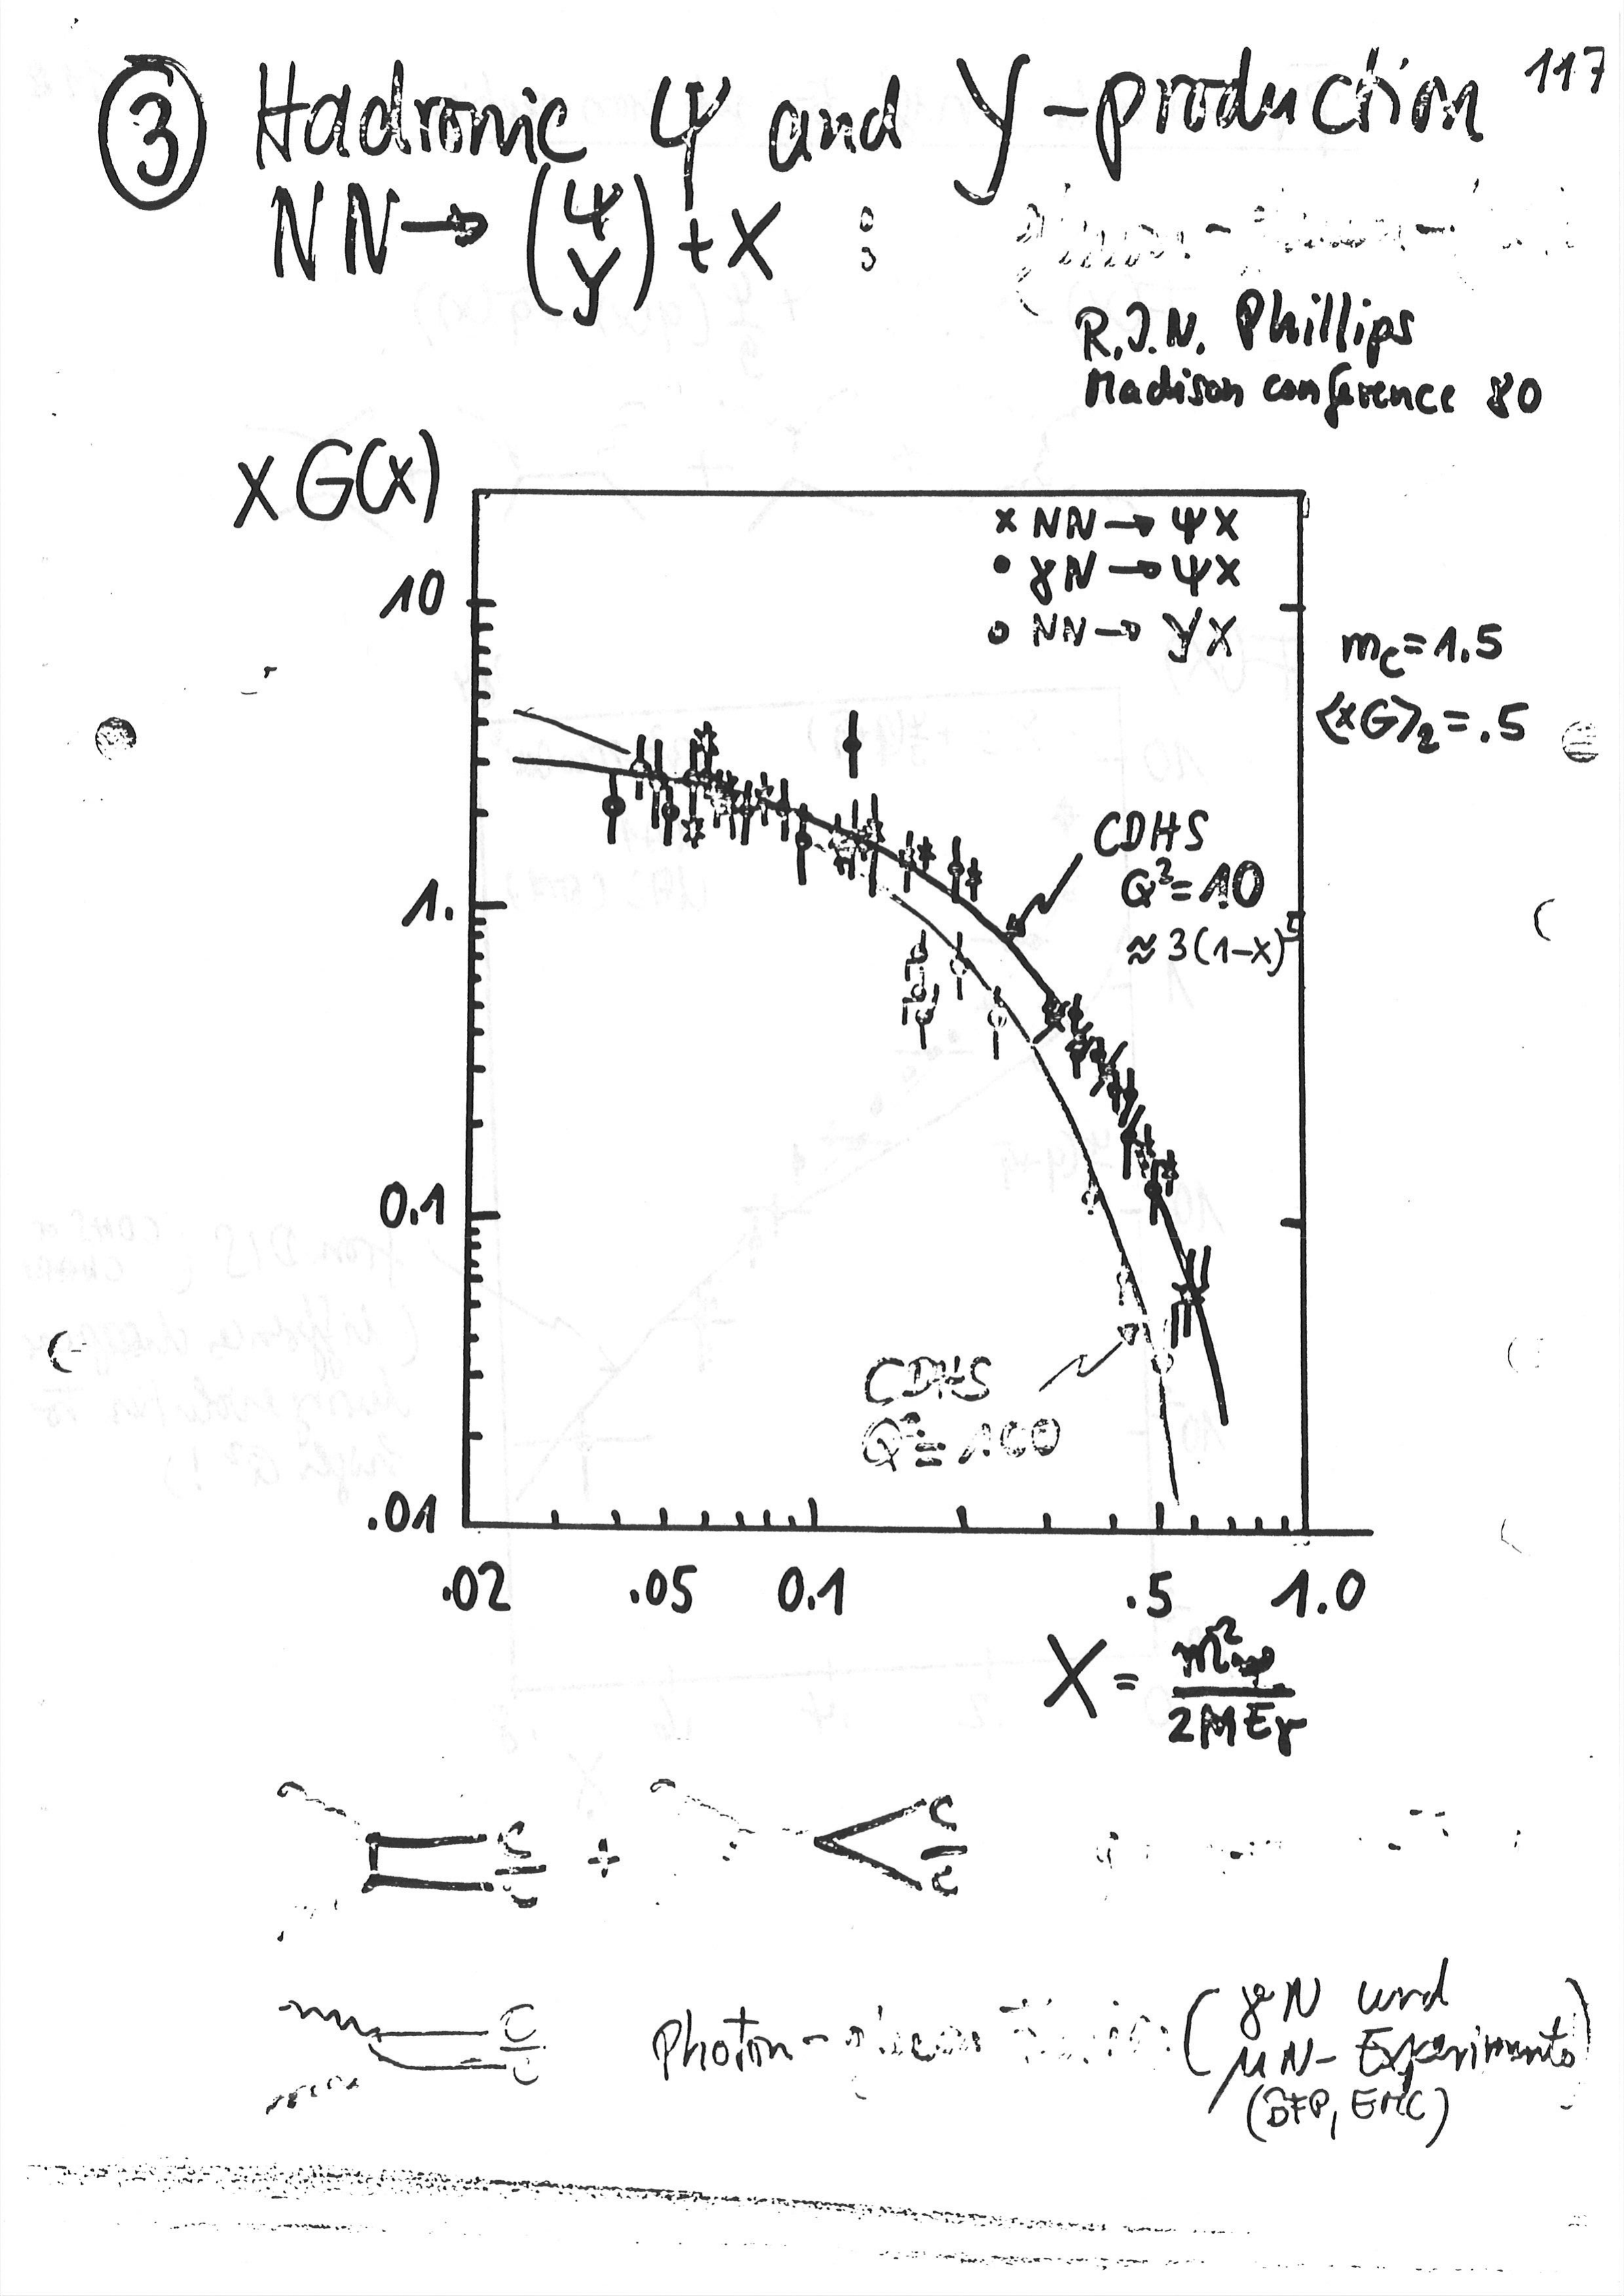 117
③ Hadronic Ψ and Y-production
NN → (Ψ Y) + X :
R.J.N. Phillips
Madison conference 80
X G(X)
× NN → ΨX
• γN → ΨX
o NN → YX
10
1.
0.1
.01
m_c = 1.5
⟨xG⟩₂ = .5
CDHS
Q² = 10
≈ 3(1-x)⁵
CDHS
Q² = 100
.02 .05 0.1 .5 1.0
X = m²_Ψ / 2MEγ
c
c̄
+
c
c̄
c
c̄
Photon- (γN und
μN- Experimente)
(BFP, EMC)